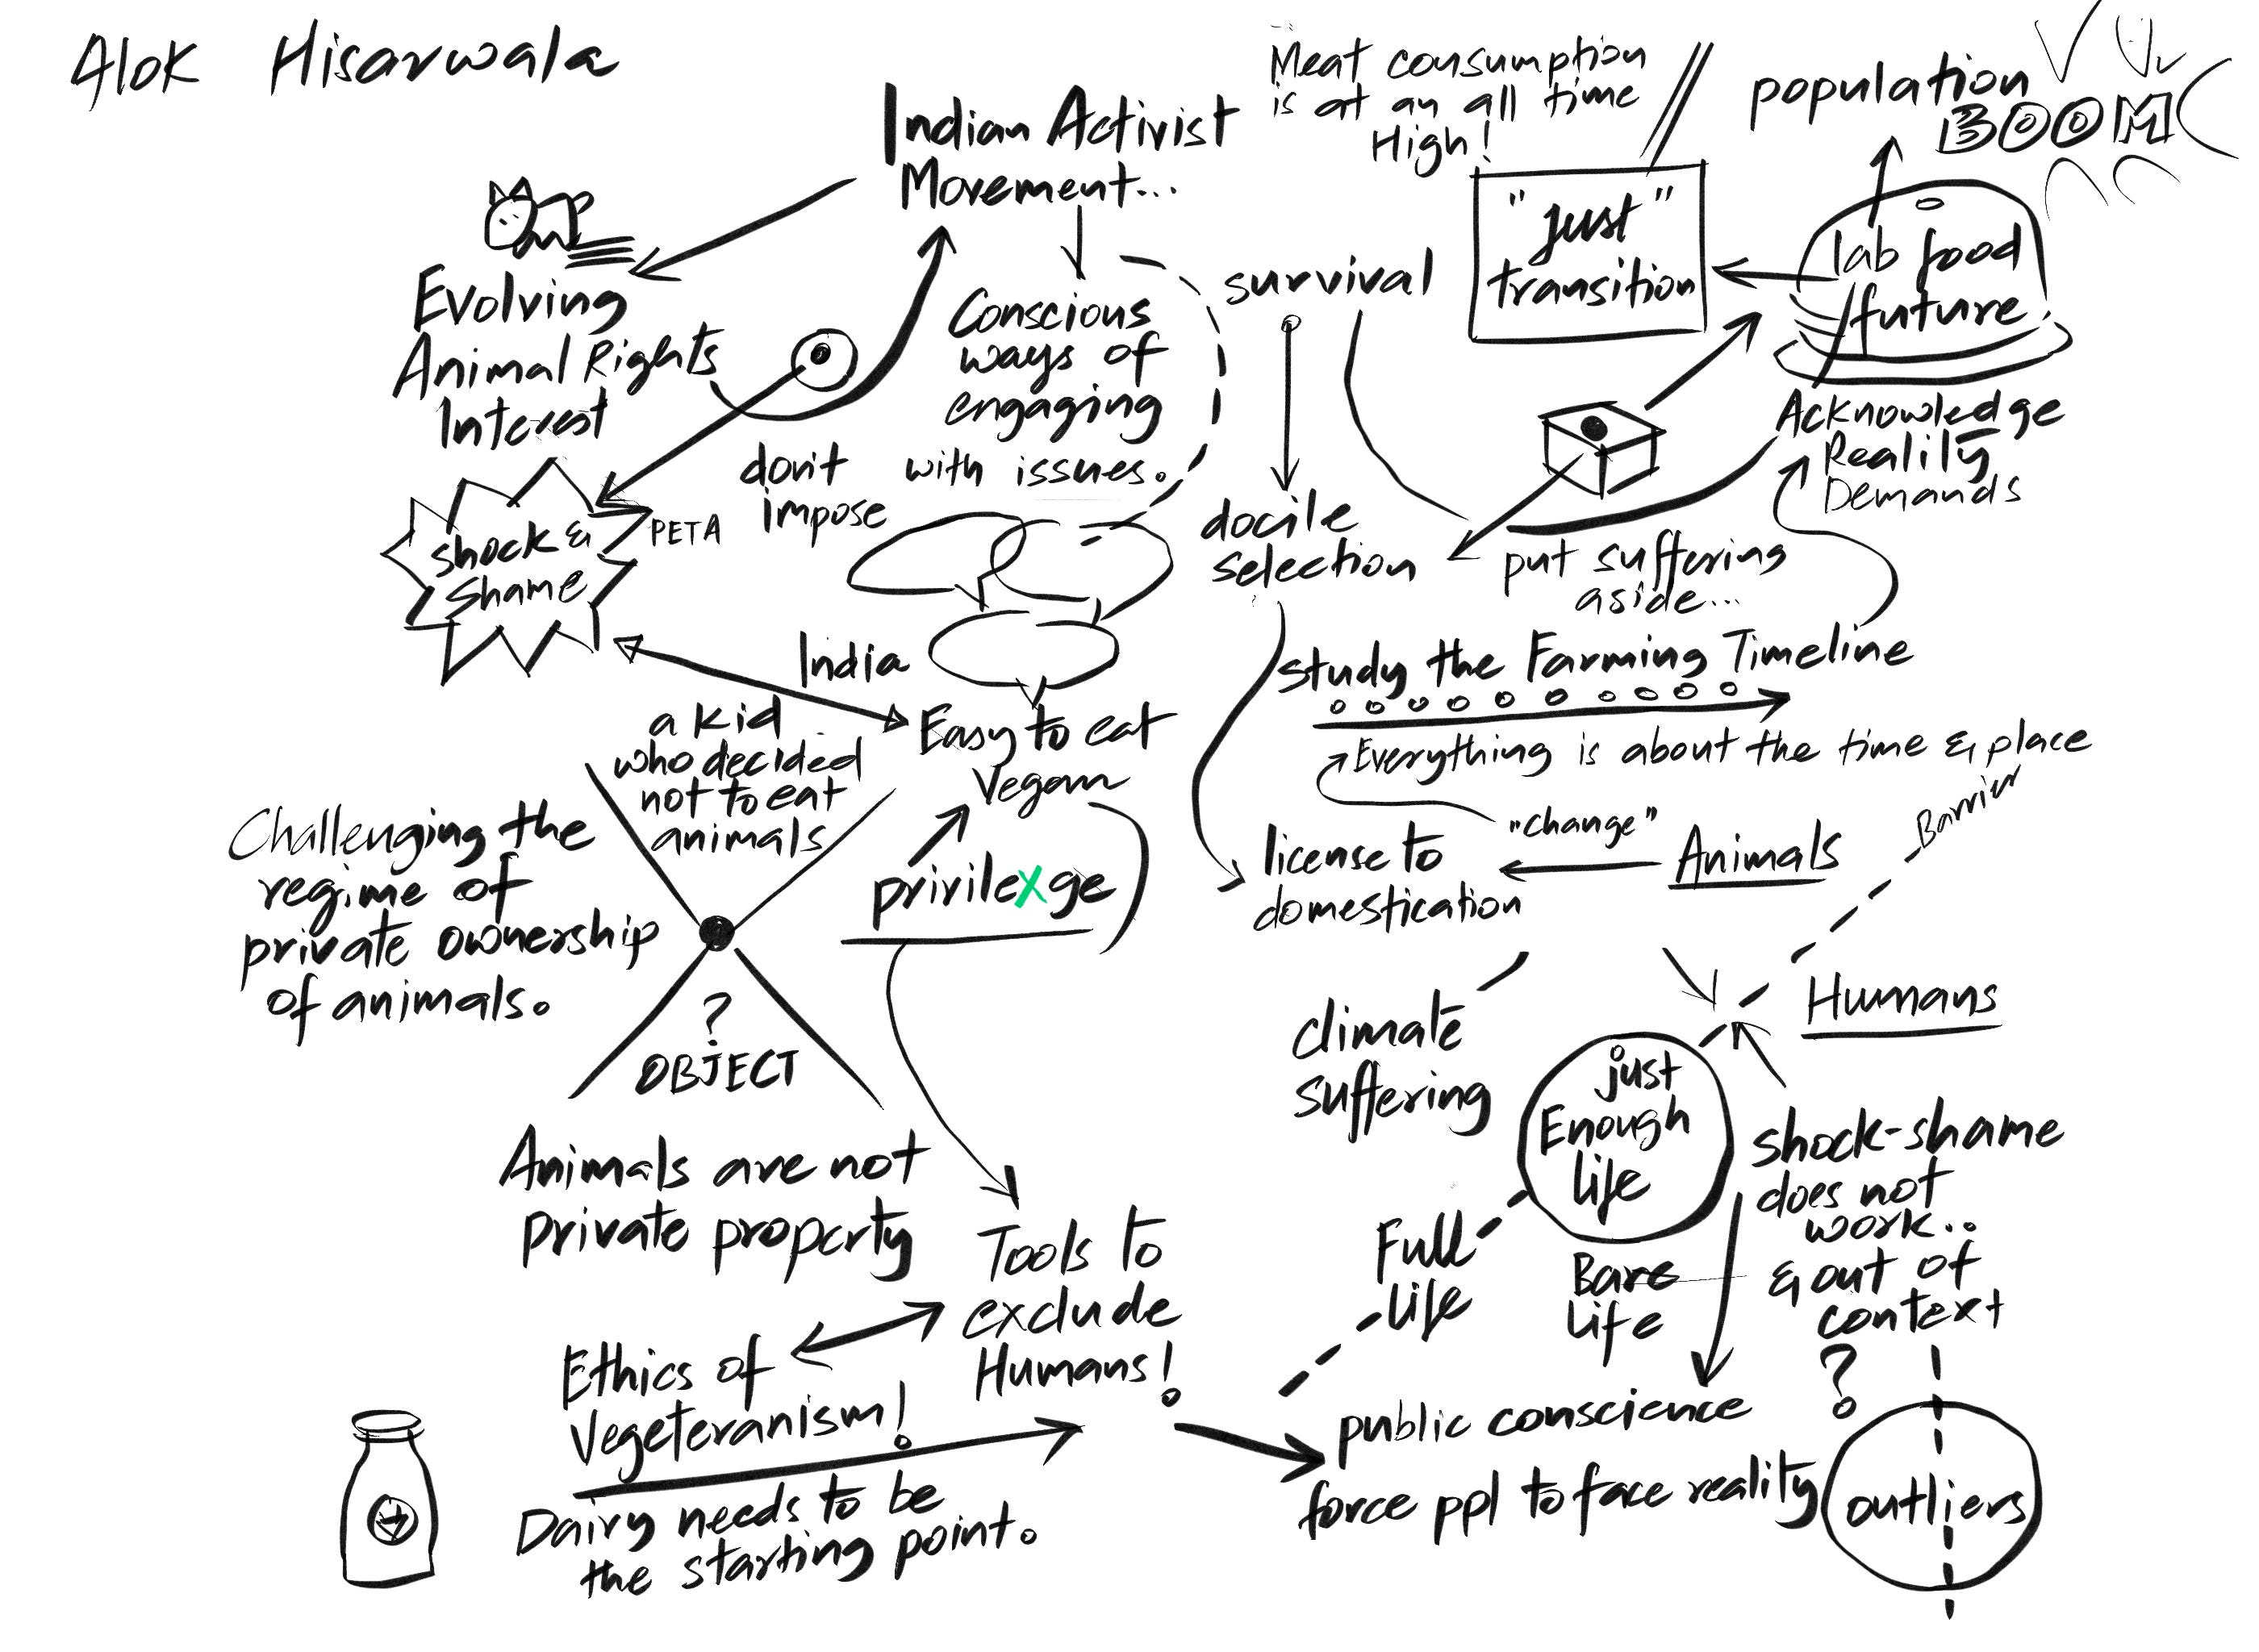 Alok Hisarwala
Indian Activist
Movement...
Meat consumption
is at an all time
High!
population
BOOM
"just"
transition
lab food
/future
Evolving
Animal Rights
Interest
Conscious
ways of
engaging
with issues.
don't
impose
survival
docile
selection
Acknowledge
Reality
Demands
put suffering
aside...
shock &
shame
PETA
India
Easy to eat
Vegan
privilexge
a kid
who decided
not to eat
animals
Challenging the
regime of
private ownership
of animals.
?
OBJECT
Animals are not
private property
study the Farming Timeline
Everything is about the time & place
"change"
Animals
Barrier
license to
domestication
Humans
climate
suffering
just
Enough
life
Full
life
Bare
life
shock-shame
does not
work..
& out of
context
?
Tools to
exclude
Humans!
Ethics of
Vegeteranism!
Dairy needs to be
the starting point.
public conscience
force ppl to face reality
outliers